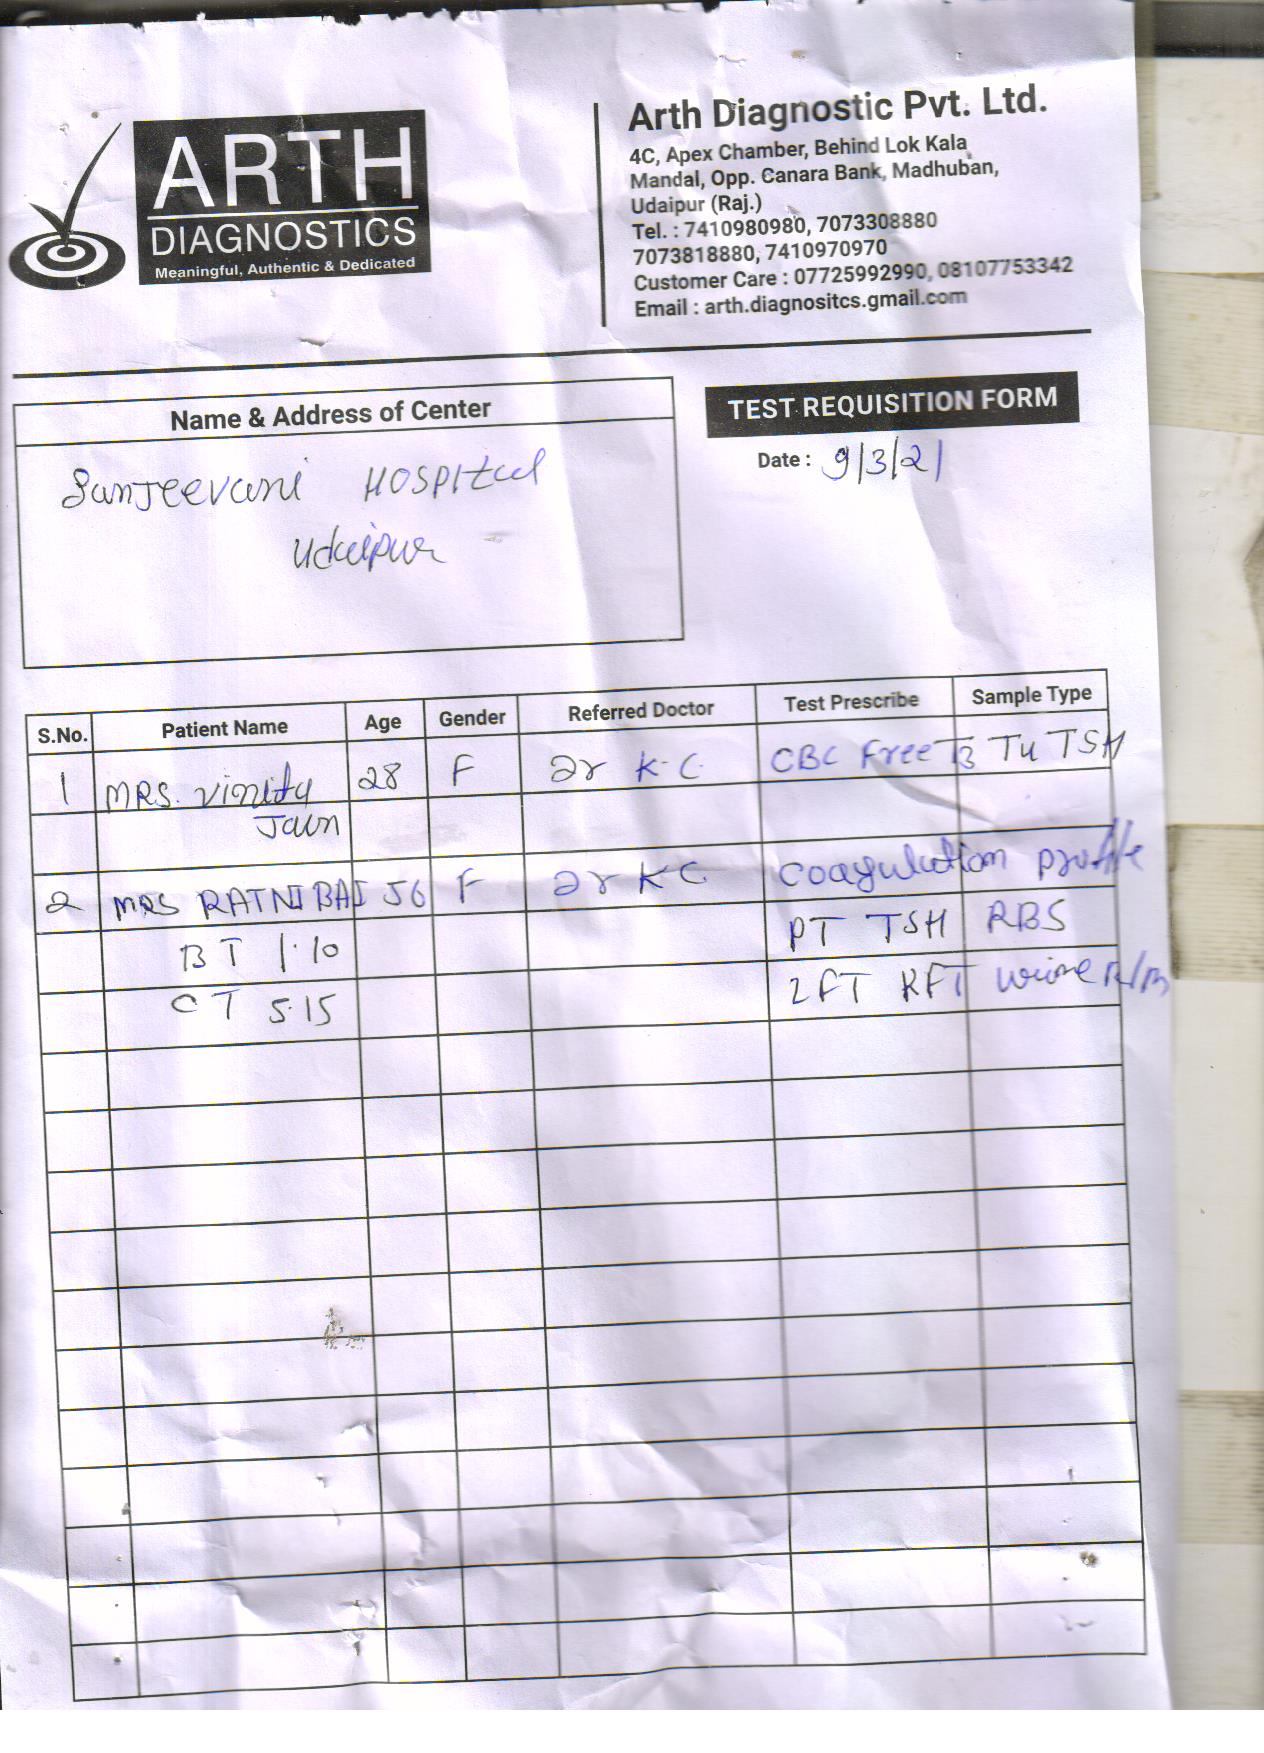 ARTH
DIAGNOSTICS
Meaningful, Authentic & Dedicated
Arth Diagnostic Pvt. Ltd.
4C, Apex Chamber, Behind Lok Kala
Mandal, Opp. Canara Bank, Madhuban,
Udaipur (Raj.)
Tel. : 7410980980, 7073308880
7073818880, 7410970970
Customer Care : 07725992990, 08107753342
Email : arth.diagnositcs.gmail.com
Name & Address of Center
Sanjeevani HOSPItal
Udaipur
TEST REQUISITION FORM
Date : 9/3/21
S.No. Patient Name Age Gender Referred Doctor Test Prescribe Sample Type
1 MRS. Vinita 28 F Dr K.C. CBC Free T3 T4 TSH
Jain
2 MRS RATNI BAI 56 F Dr KC Coagulation profile
BT 1.10 PT TSH RBS
CT 5.15 LFT KFT Urine R/M